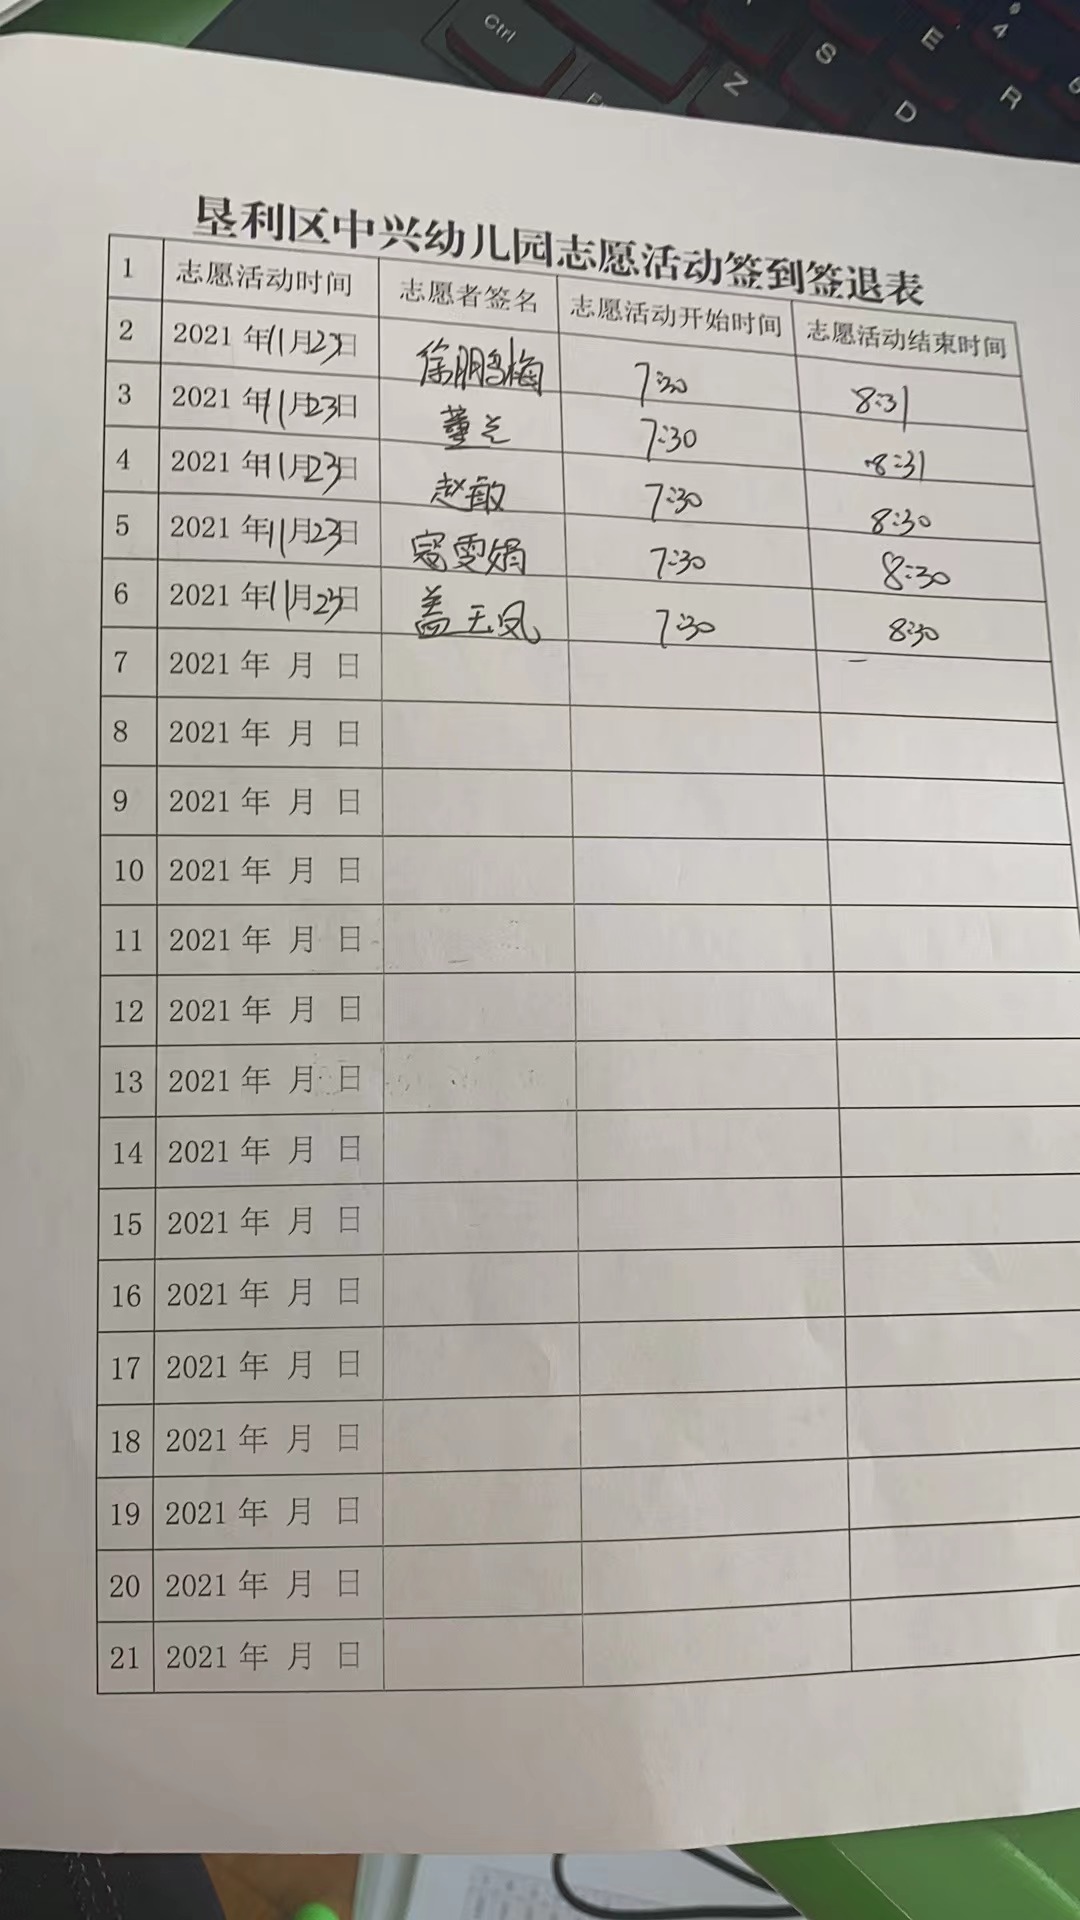 Ctrl
Z
S
D
E
R
4
垦利区中兴幼儿园志愿活动签到签退表
1 志愿活动时间 志愿者签名 志愿活动开始时间 志愿活动结束时间
2 2021 年11月23日 徐鹏梅 7:30 8:31
3 2021 年11月23日 董兰 7:30 8:31
4 2021 年11月23日 赵敏 7:30 8:30
5 2021 年11月23日 寇雯娟 7:30 8:30
6 2021 年11月23日 盖玉凤 7:30 8:30
7 2021 年 月 日
8 2021 年 月 日
9 2021 年 月 日
10 2021 年 月 日
11 2021 年 月 日
12 2021 年 月 日
13 2021 年 月 日
14 2021 年 月 日
15 2021 年 月 日
16 2021 年 月 日
17 2021 年 月 日
18 2021 年 月 日
19 2021 年 月 日
20 2021 年 月 日
21 2021 年 月 日